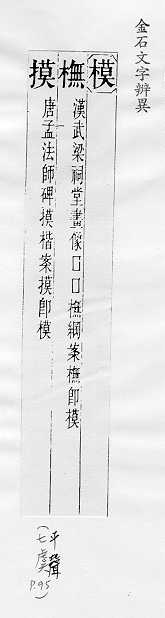 金石文字辨異
模
橅 漢武梁祠堂畫像囗囗橅綱案橅卽模
摸 唐孟法師碑摸楷案摸卽模
平聲
(七虞
P.95)